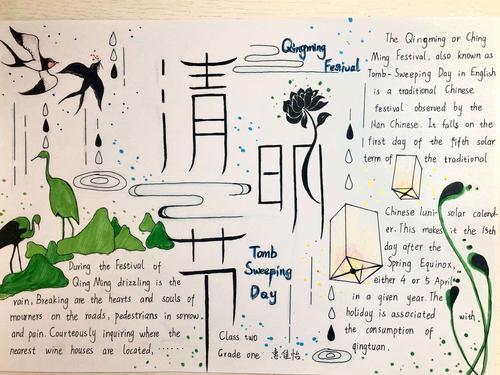 清
明
节
Qingming
Festival
The Qingming or Ching
Ming Festival, also known as
Tomb-Sweeping Day in English
is a traditional Chinese
festival observed by the
Han Chinese. It falls on the
first day of the fifth solar
term of the traditional
Chinese luni-solar calend-
er. This makes it the 15th
day after the
Spring Equinox,
either 4 or 5 April
in a given year. The
holiday is associated with
the consumption of
qingtuan.
Tomb
Sweeping
Day
During the Festival of
Qing Ming drizzling is the
rain, Breaking are the hearts and souls of
mourners on the roads, pedestrians in sorrow
and pain. Courteously inquiring where the
nearest wine houses are located, ......
Class two
Grade one